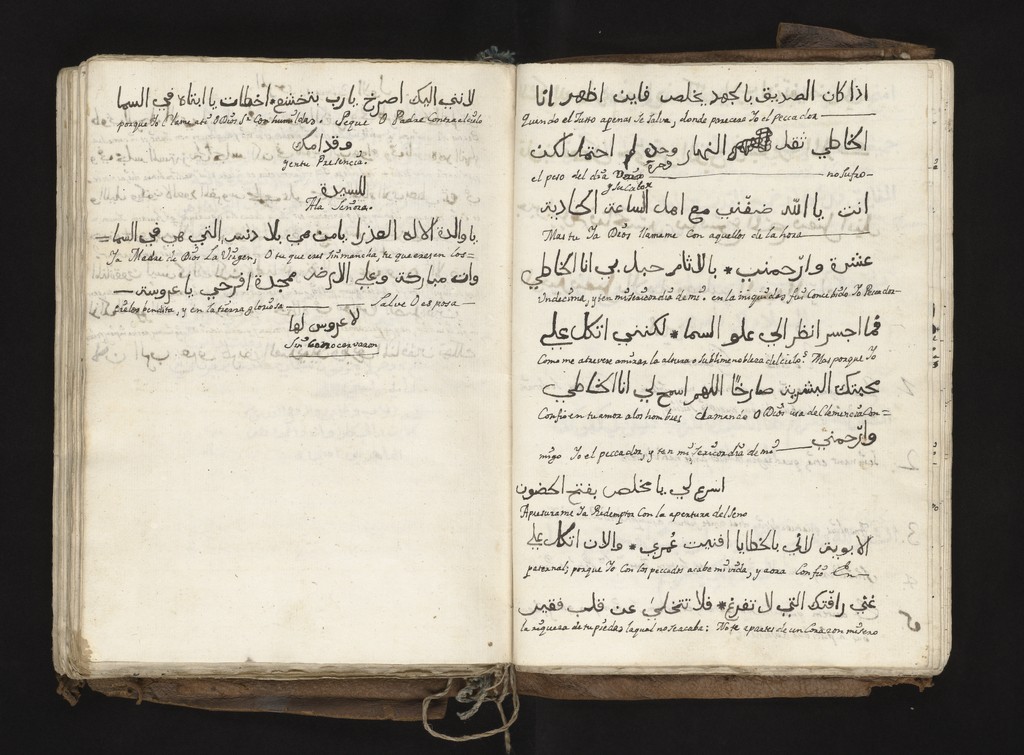 اذا كان الصديق بالجهد يخلص فاين اظهر انا
Quando el Justo apenas se salva, donde parecera Yo el peccador
الخاطي ثقل النهار وحره لم احتمل لكن
وحره
el peso del dia no sufro
y su calor
انت يا الله ضفّني مع اهل الساعة الحادية
Mas tu Ya Dios llamame Con aquellos de la hora
عشرة وارحمني * بالاثام حبل بي انا الخاطي
Undecima, y ten misericordia de mi. en la iniquidad fui Concebido Yo Peccador
فما اجسر انظر الي علو السما * لكنني اتكل علي
Como me atrevere a mirar la altura o sublime nobleza del cielo? Mas porque Yo
محبتك البشرية صارخًا اللهم اسمح لي انا الخاطي
Confio en tu amor a los hombres clamando O Dios usa de Clemencia Con=
وارحمني
migo Yo el peccador, y ten misericordia de mi
اسرع لي يا مخلص بفتح الحضون
Apresurame Ya Redemptor Con la apertura del seno
الابوية لانّي بالخطايا افنيت عُمري * والان اتكل علي
paternal; porque Yo Con los peccados acabe mi vida, y aora Confio En
غني رافتك التي لا تفرغ * فلا تتخلي عن قلب فقير
la riqueza de tu piedad laqual no se acaba: No te apartes de un Corazon misero
لانني اليك اصرخ يا رب بتخشع اخطات يا ابتاه في السما
porque Yo llamo a ti O Dios Con humildad. Peque O Padre Contra el cielo
وقدامك
y en tu Presencia.
للسيدة
A la Señora.
يا والدة الاله العذرا يا من هي بلا دنس التي هي في السما=
Ya Madre de Dios La Virgen, O tu que eres sin mancha, tu que eres en los=
وات مباركة وعلي الارض ممجدة افرحي يا عروسة
cielos bendita, y en la tierra gloriosa Salve O esposa
لا عروس لها
Sin